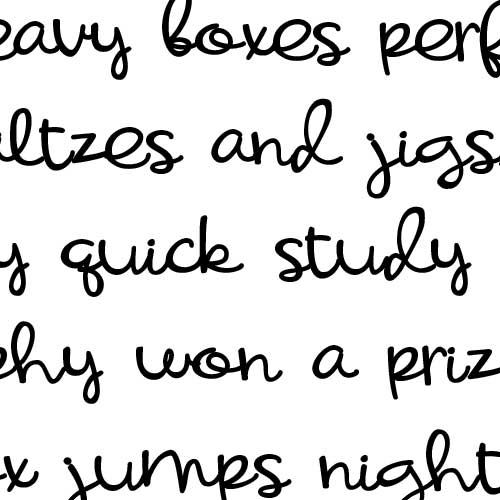 eavy boxes perf
altzes and jigs
y quick study
phy won a priz
x jumps night